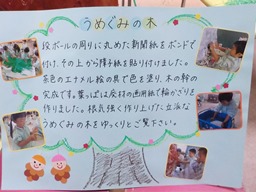 うめぐみの木
段ボールの周りに丸めた新聞紙をボンドで
付け、その上から障子紙を貼り付けました。
茶色のエナメル絵の具で色を塗り、木の幹の
完成です。葉っぱは廃材の画用紙で輪かざりを
作りました。根気強く作り上げた立派な
うめぐみの木をゆっくりとご覧下さい。